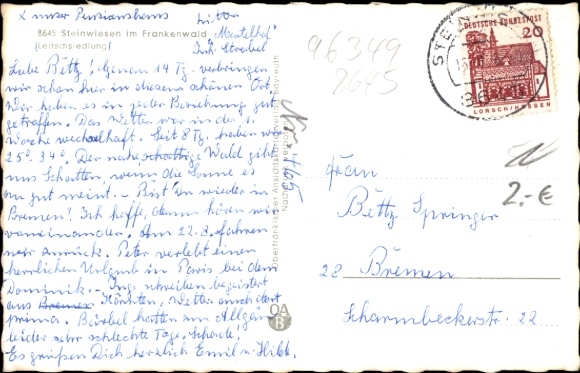 x unser Pensionsheim
8645 Steinwiesen im Frankenwald
(Leitschsiedlung)
Liebe Betty! Genau 14 Tg. verbringen
wir schon hier in diesem schönen Ort.
Wir haben es in jeder Beziehung gut
getroffen. Das Wetter war in der 1.
Woche wechselhaft. Seit 8 Tg. haben wir
25°. 34°. Der nahe schattige Wald gibt
uns Schatten, wenn die Sonne es
zu gut meint. - Bist Du wieder in
Bremen? Ich hoffe, dann hören wir
voneinander. Am 22.8. fahren
wir zurück. Peter verlebt einen
herrlichen Urlaub in Paris bei dem
Dominik. - Inge schreiben begeistert
aus Bremen Kärnten, Wetter auch dort
prima. Bärbel hatten im Allgäu
leider sehr schlechte Tage. Schade!
Es grüßen Dich herzlich Emil u. Hilde.
96349
8645
DEUTSCHE BUNDESPOST
20
LORSCH/HESSEN
Oberfränkischer Ansichtskartenverlag Bayreuth
Nr. 4165
OA
B
Frau
Betty Springer
28 Bremen
Scharmbeckerstr. 22
2.-€